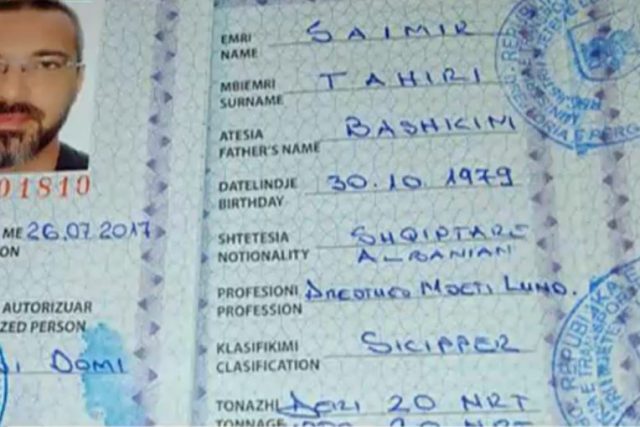 EMRI
NAME SAIMIR
MBIEMRI
SURNAME TAHIRI
ATESIA
FATHER'S NAME BASHKIM
DATELINDJE
BIRTHDAY 30.10.1979
SHTETESIA SHQIPTARE
NOTIONALITY ALBANIAN
PROFESIONI
PROFESSION
KLASIFIKIMI
CLASIFICATION SKIPPER
TONAZHI 20 NRT
TONNAGE 20 NRT
01810
ME 26.07.2017
ON
AUTORIZUAR
ZED PERSON
DOMI